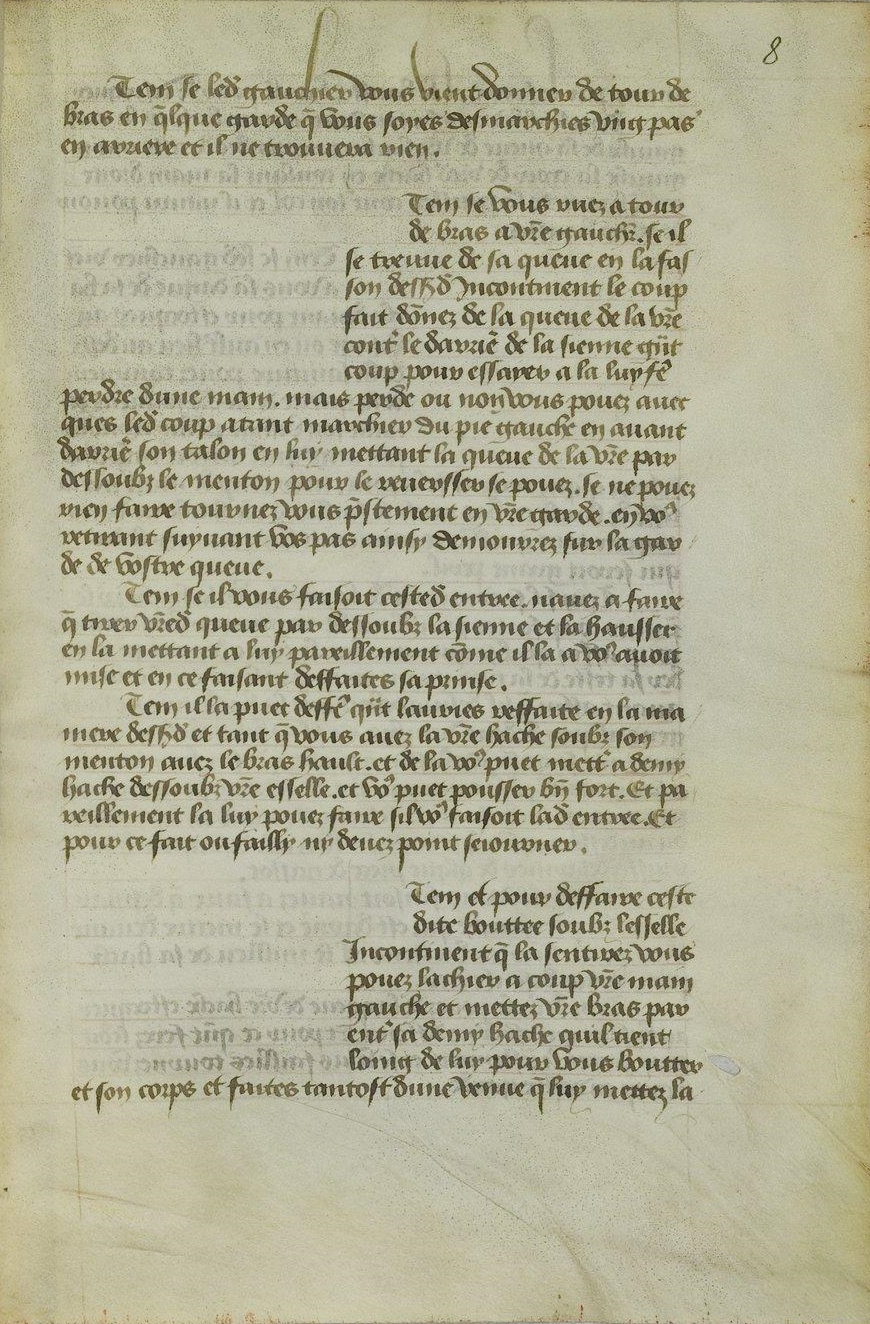 8
Tem se led gauchier vous vient donner de tour de
bras en q̄lque garde q̄ vous soyes desmarchies ung pas
en arriere et il ne trouvera rien.
Tem se vous ruez a tour
de bras a vr̄e gauchr̄. se il
se treuue de sa queue en la fas
son dess͞d Incontinent le coup
fait dōnez de la queue de la vr̄e
cont̾ le darrie᷑ de la sienne
coup pour essayer a la luy fe᷑
perdre dune main. mais perde ou non vous pouez auec
ques led coup atant marchier du pie gauche en auant
darrie᷑ son talon en luy mettant la queue de la vr̄e par
dessoubz le menton pour le reuersser se pouez. se ne pouez
rien faire tournez vous p̄stement en vr̄e garde. en voꝰ
retirant suyuant vos pas ainsy demourrez sur la gar
de de vostre queue.
Tem se il vous faisoit cested entree. nauez a faire
q̄ tirer vr̄ed queue par dessoubz la sienne et la hausser
en la mettant a luy pareillement cōme il la a voꝰ auoit
mise et en ce faisant deffaites sa prinse.
Tem il la puet deffe᷑ q̄nt lauries reffaite en la ma
niere dess͞d et tant q̄ vous auez la vr̄e hache soubz son
menton auez le bras hault. et de la voꝰ puet mett̾ a demy
hache dessoubz vr̄e esselle. et voꝰ puet pousser bn̄ fort. Et pa
reillement la luy pouez faire sil voꝰ faisoit lad entree. Et
pour ce fait ou failly ny deuez point seiourner.
Tem et pour deffaire ceste
dite bouttee soubz lesselle
Incontinent q̄ la sentirez vous
pouez lachier a coup vr̄e main
gauche et mettez vr̄e bras par
ent̾ sa demy hache quil tient
loing de luy pour vous boutter
et son corps et faites tantost dune venue q̄ luy mettez la